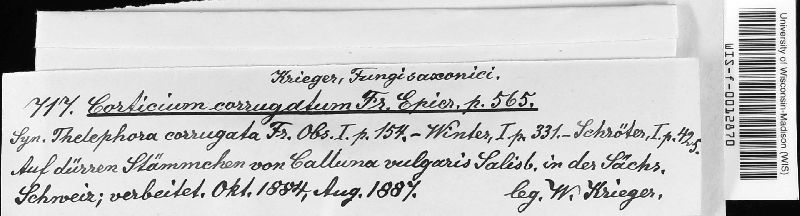 Krieger, Fungi saxonici.
717. Corticium corrugatum Fr. Epicr. p. 565.
Syn. Thelephora corrugata Fr. Obs. I. p. 154. - Winter, I. p. 331. - Schröter, I. p. 425.
Auf dürren Stämmchen von Calluna vulgaris Salisb. in der Sächs.
Schweiz; verbeitet. Okt. 1884, Aug. 1887. leg. W. Krieger.
University of Wisconsin-Madison (WIS)
WIS-f-0032870